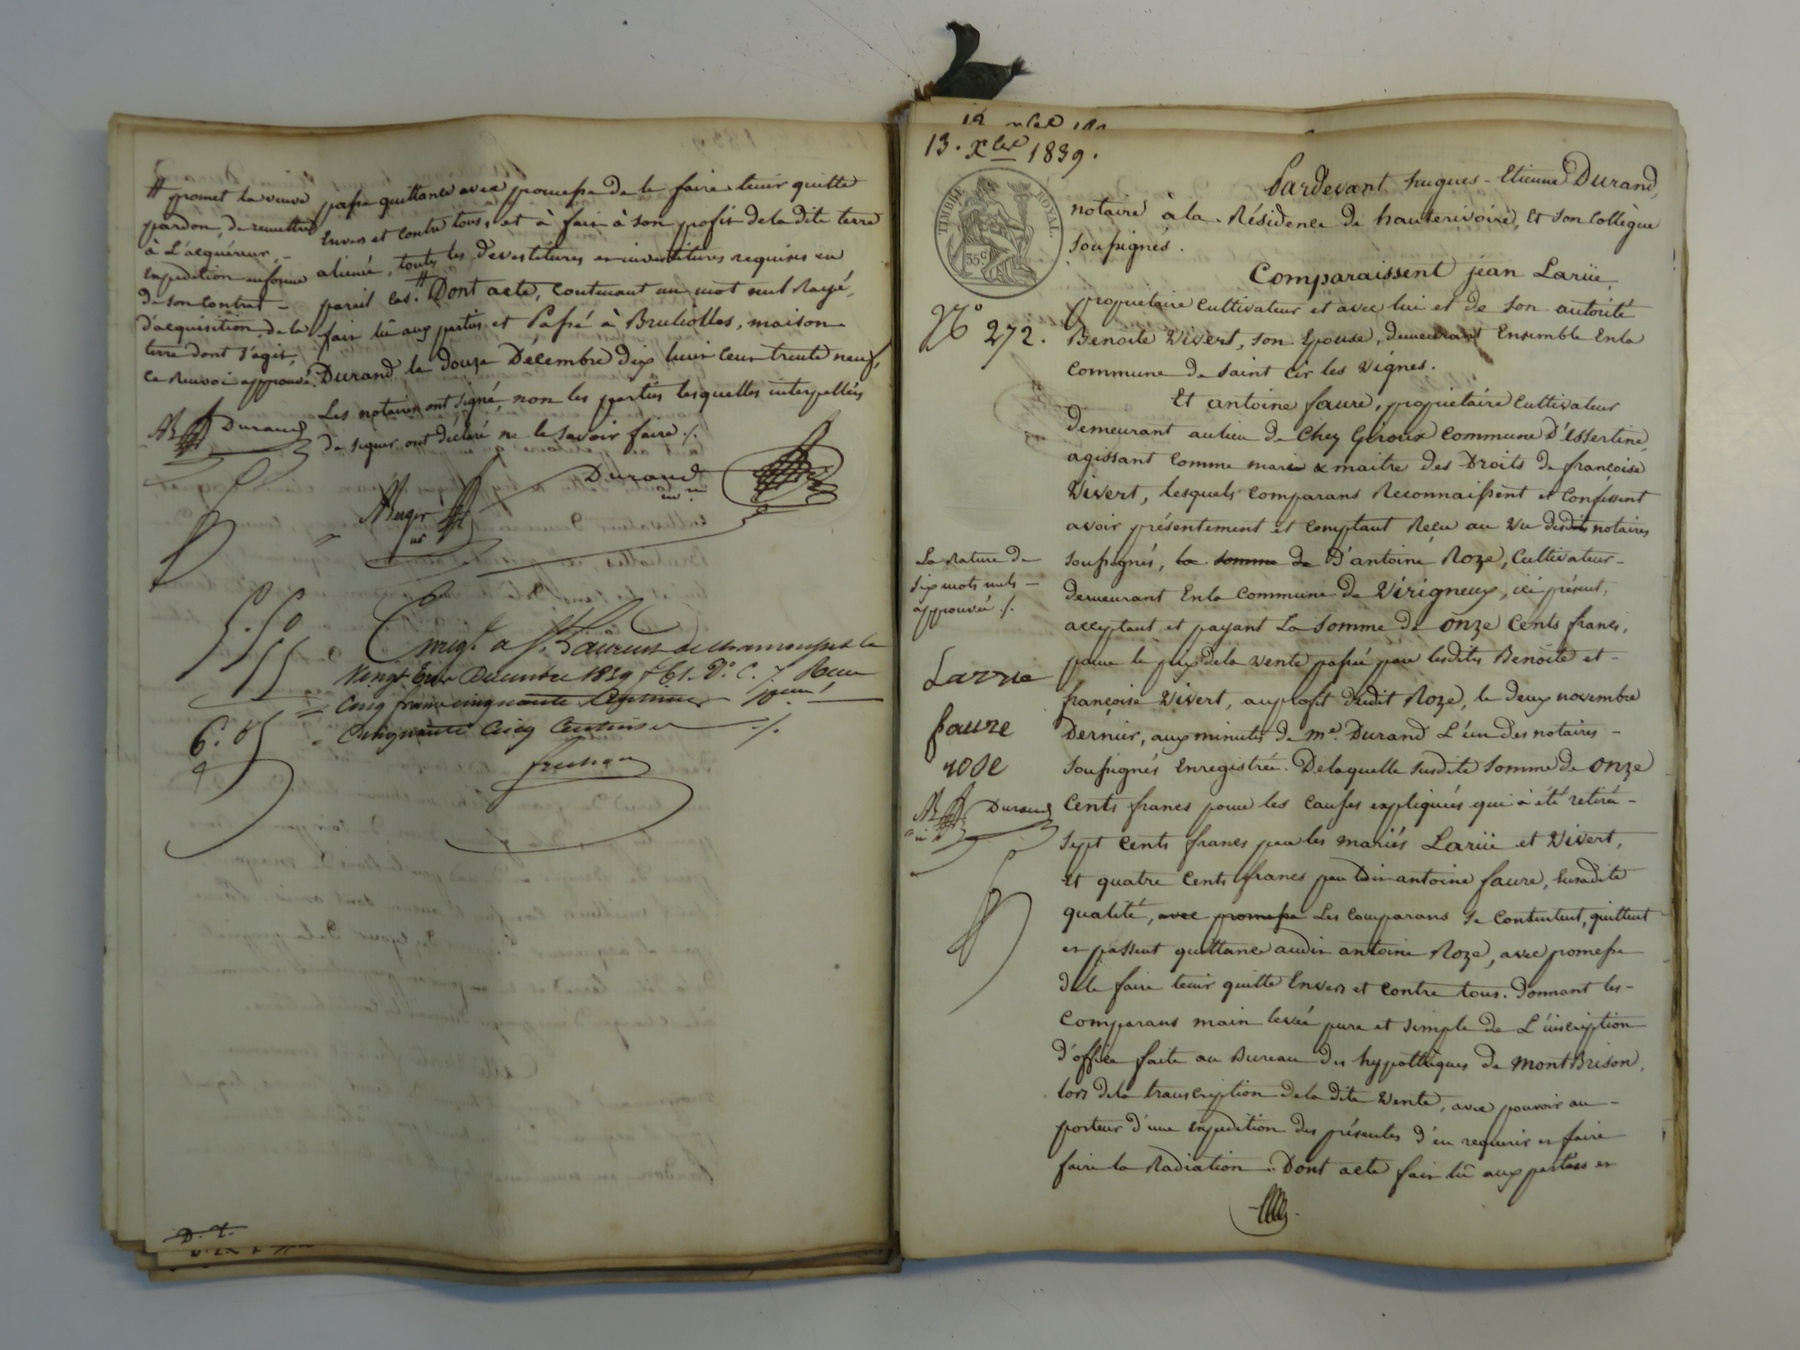 # promet la veuve
pardon, de remettre
à L'acquéreur, -
Expédition en forme
de son contrat -
d'acquisition de la
terre dont s'agit,
ce Renvoi approuvé.
Durand
passe quittance avec promesse de le faire tenir quitte
Envers et contre tous, et à fair à son profit de la dite terre
aliénée, toutes les devestitures et investitures requises en
pareil cas. # Dont acte, contenant un mot nul Rayé,
fait lû aux parties et Passé à Brulioles, maison
Durand le douze Décembre dix huit cent trente neuf,
Les notaires ont signé, non les parties lesquelles interpellées
de signer ont déclaré ne le savoir faire ./.
Berger
Durand
5.50
55
6.05
Enregt. a St. Laurent de chamousset le
Vingt Décembre 1839 fo 61. Vo. C. 7 Recu
Cinq francs cinquante Centimes 10eme
Cinquante Cinq Centimes ./.
D. L.
13. Xbre 1839.
TIMBRE ROYAL.
35 c
No 272.
Pardevant hugues - Etienne Durand,
notaire à la Résidence de hauterivoire, Et son Collègue
soussignés.
Comparaissent jean Larüe,
propriétaire cultivateur et avec lui et de son autorité
Benoite Vivert, son Epouse, demeurant Ensemble En la
commune de saint cir les Vignes.
Et antoine faure, propriétaire cultivateur
demeurant au lieu de Chez Giroux commune D'Essertine,
agissant comme marie & maitre des Droits de françoise
Vivert, lesquels comparans Reconnaissent et Confessent
avoir présentement et comptant Reçu au Vu desdits notaires
soussignés, la somme de D'antoine Roze, Cultivateur -
demeurant En la commune de Virigneux, ici présent,
acceptant et payant La somme de onze Cents francs,
pour le prix de la vente passée par lesdites Benoite et -
françoise Vivert, au profit dudit Roze, le deux novembre
Dernier, aux minutes de me. Durand L'un des notaires -
soussignés Enregistrée. De laquelle susdite somme de onze
Cents francs pour les causes expliquées qui à été retirée -
sept cents francs par les mariés Larüe et Vivert,
Et quatre Cents francs par ledit antoine faure, Susdite
qualité, avec promesse Les comparans se contentent, quittent
et passent quittance audit antoine Roze, avec promesse
de le faire tenir quitte Envers et contre tous. Donnant les -
comparans main levée pure et simple de L'inscription
d'office faite au Bureau des hypothèques de MontBrison,
lors de la transcription de la dite Vente, avec pouvoir au -
porteur d'une expédition des présentes d'en requerir et faire
faire la Radiation. Dont acte fait lû aux parties et
La Rature de
six mots nuls -
approuvée ./.
Larue
faure
rose
Durand